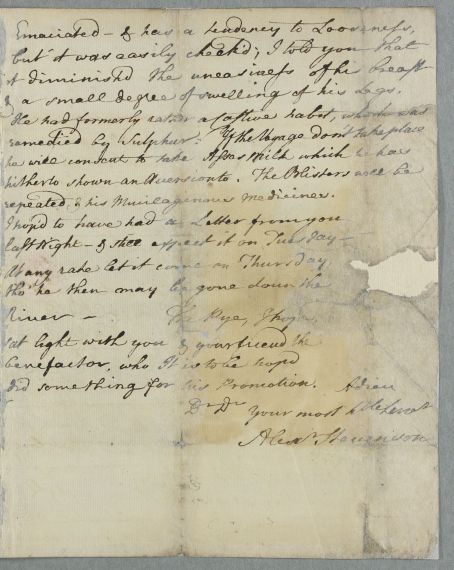 Emaciated - & has a tendency to Looseness,
but it was easily check'd; I told you that
it diminish'd the uneasiness of his breast
& a small degree of swelling of his Legs.
He had formerly rather a costive habit, which was
remedied by Sulphur. If the Voyage don't take place
he will consent to take Asses Milk which he has
hitherto shown an Aversion to. The Blisters will be
repeated, & his Mucilagenous medicines.
I hop'd to have had a Letter from you
last Night - & shall expect it on Tuesday -
At any rate let it come on Thursday,
tho' he then may be gone down the
River - The Rye, I hope,
sat light with you & your friend the
benefactor, who it is to be hop'd
did something for his Promotion. Adieu
Dr Dr
your most
Alexr Stevenson